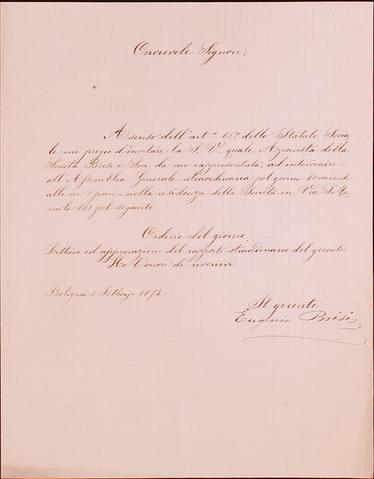 Onorevole Signore,
A senso dell'art.° 15° dello Statuto Socia
le mi pregio d'invitare la S. V. quale Azionista della
Società Brisi e Soci da me rappresentata, ad intervenire
all'Assemblea Generale straordinaria pel giorno 10 corrent
alle ore 1 pom. nella residenza della Società in Via
pel seguente
Ordine del giorno
Lettura ed approvazione del rapporto straordinario del gerente
Ho l'onore di riverirla
Bologna 2 Febbrajo 1874
Il gerente
Eugenio Brisi